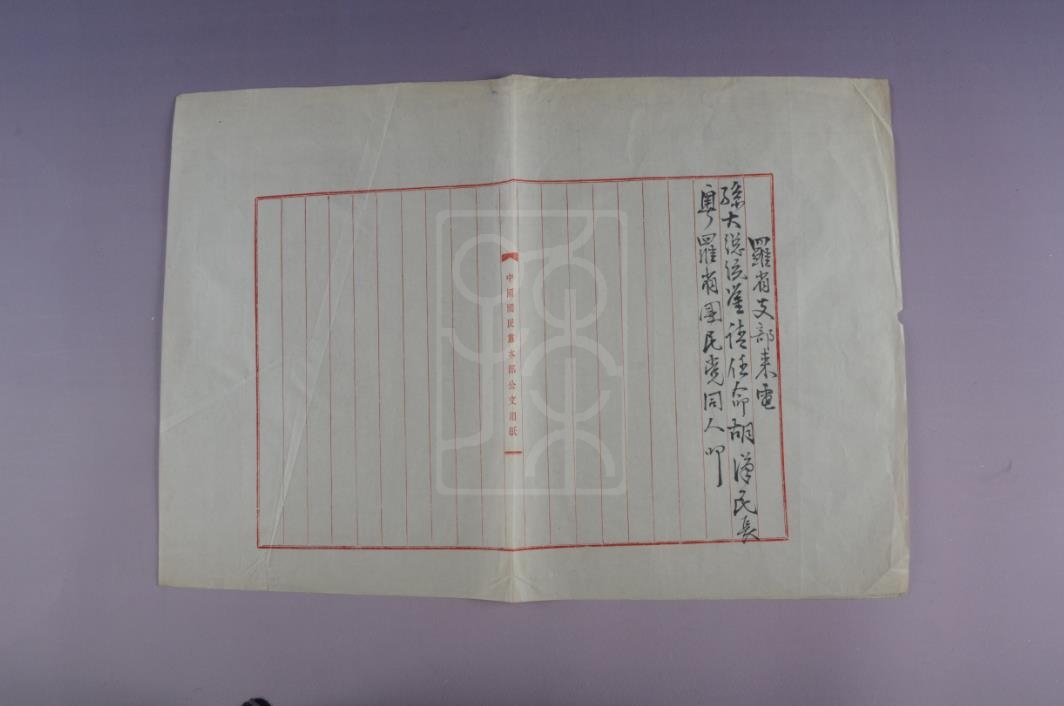 羅省支部来電
孫大總統鉴請任命胡漢民長
粵羅省國民党同人叩
中國國民黨本部公文用紙